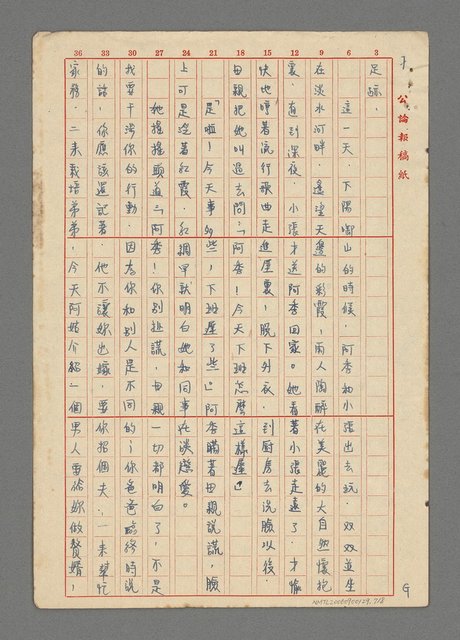 公論報稿紙
足跡。
這一天，下陽明山的時候，阿秀和小張出去玩，双双並坐
在淡水河畔，遙望天邊的彩霞，兩人陶醉在美麗的大自然懷抱
裏，直到深夜，小張才送阿秀回家。她看著小張走遠了，才愉
快地哼着流行歌曲走進屋裏，脫下外衣，到厨房去洗臉以後，
母親把她叫過去問：「阿秀！今天下班怎麼這樣遲」
「是啦！今天事多些，下班遲了些」阿秀瞞著母親說謊，臉
上可是泛著紅霞，紅綢早就明白她和同事在談戀愛。
她搖搖頭道：「阿秀！你別扯謊，母親一切都明白了，不是
我要干涉你的行動，因為你和別人是不同的，你爸爸臨終時說
的話，你應該還記著，他不讓妳出嫁，要你招個夫，一來幫忙
家務，二來栽培弟弟，今天阿姑介紹一個男人要給妳做贅婿，
3 6 9 12 15 18 21 24 27 30 33 36
NMTL20000900129,7/8